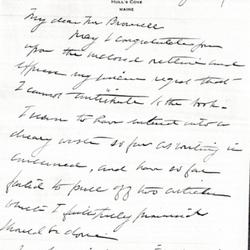 HULL'S COVE
MAINE
My dear Mr Brownell
May I congratulate you
upon the enclosed and
express my sincere regret that
I cannot contribute to the book.
I seem to have entered into a
dreary waste so far as writing is
concerned, and have so far
failed to two articles
which I faithfully promised
should be done